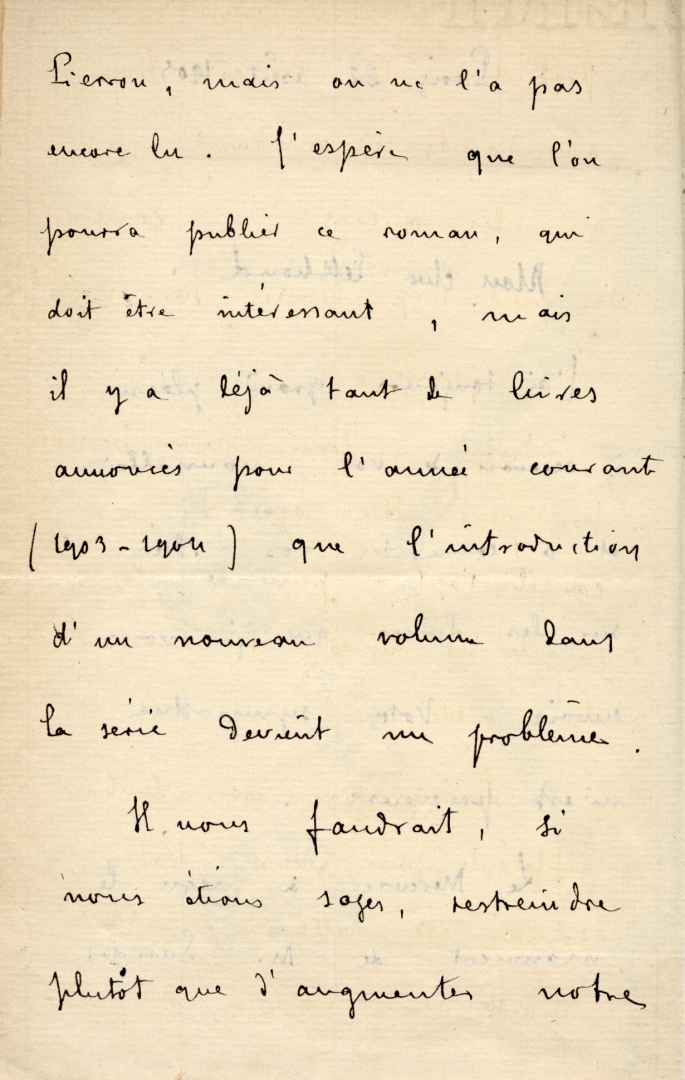 Pierron, mais on ne l'a pas
encore lu. J'espère que l'on
pourra publier ce roman, qui
doit être intéressant, mais
il y a déjà tant de livres
annoncés pour l'année courant
(1903-1904) que l'introduction
d'un nouveau volume dans
la série devient un problème.
Il nous faudrait, si
nous étions sages, restreindre
plutôt que d'augmenter notre